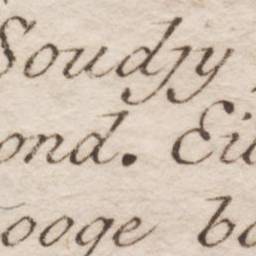 Soudjy
ond. Ei
ooge bo